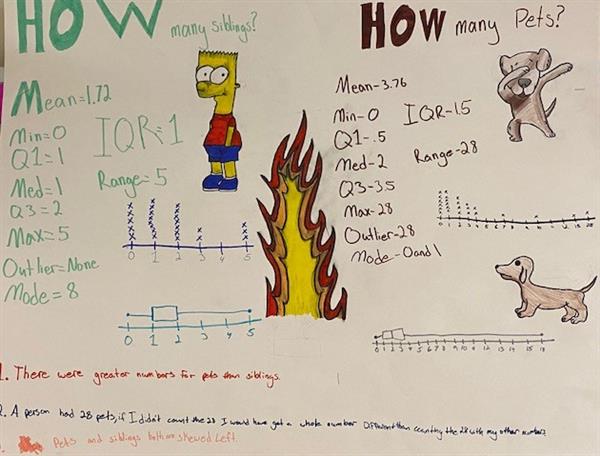 HOW many siblings?
Mean=1.72
Min=0
Q1=1
Med=1
Q3=2
Max=5
Outlier=None
Mode=8
IQR=1
Range=5
0 1 2 3 4 5
0 1 2 3 4 5
HOW many Pets?
Mean-3.76
Min-0
Q1-.5
Med-2
Q3-3.5
Max-28
Outlier-28
Mode-0 and 1
IQR-1.5
Range-28
1. There were greater numbers for pets than siblings.
2. A person had 28 pets, if I didn't count the 28 I would have got a whole number Different than counting the 28 with my other numbers
Pets and siblings both are skewed left.